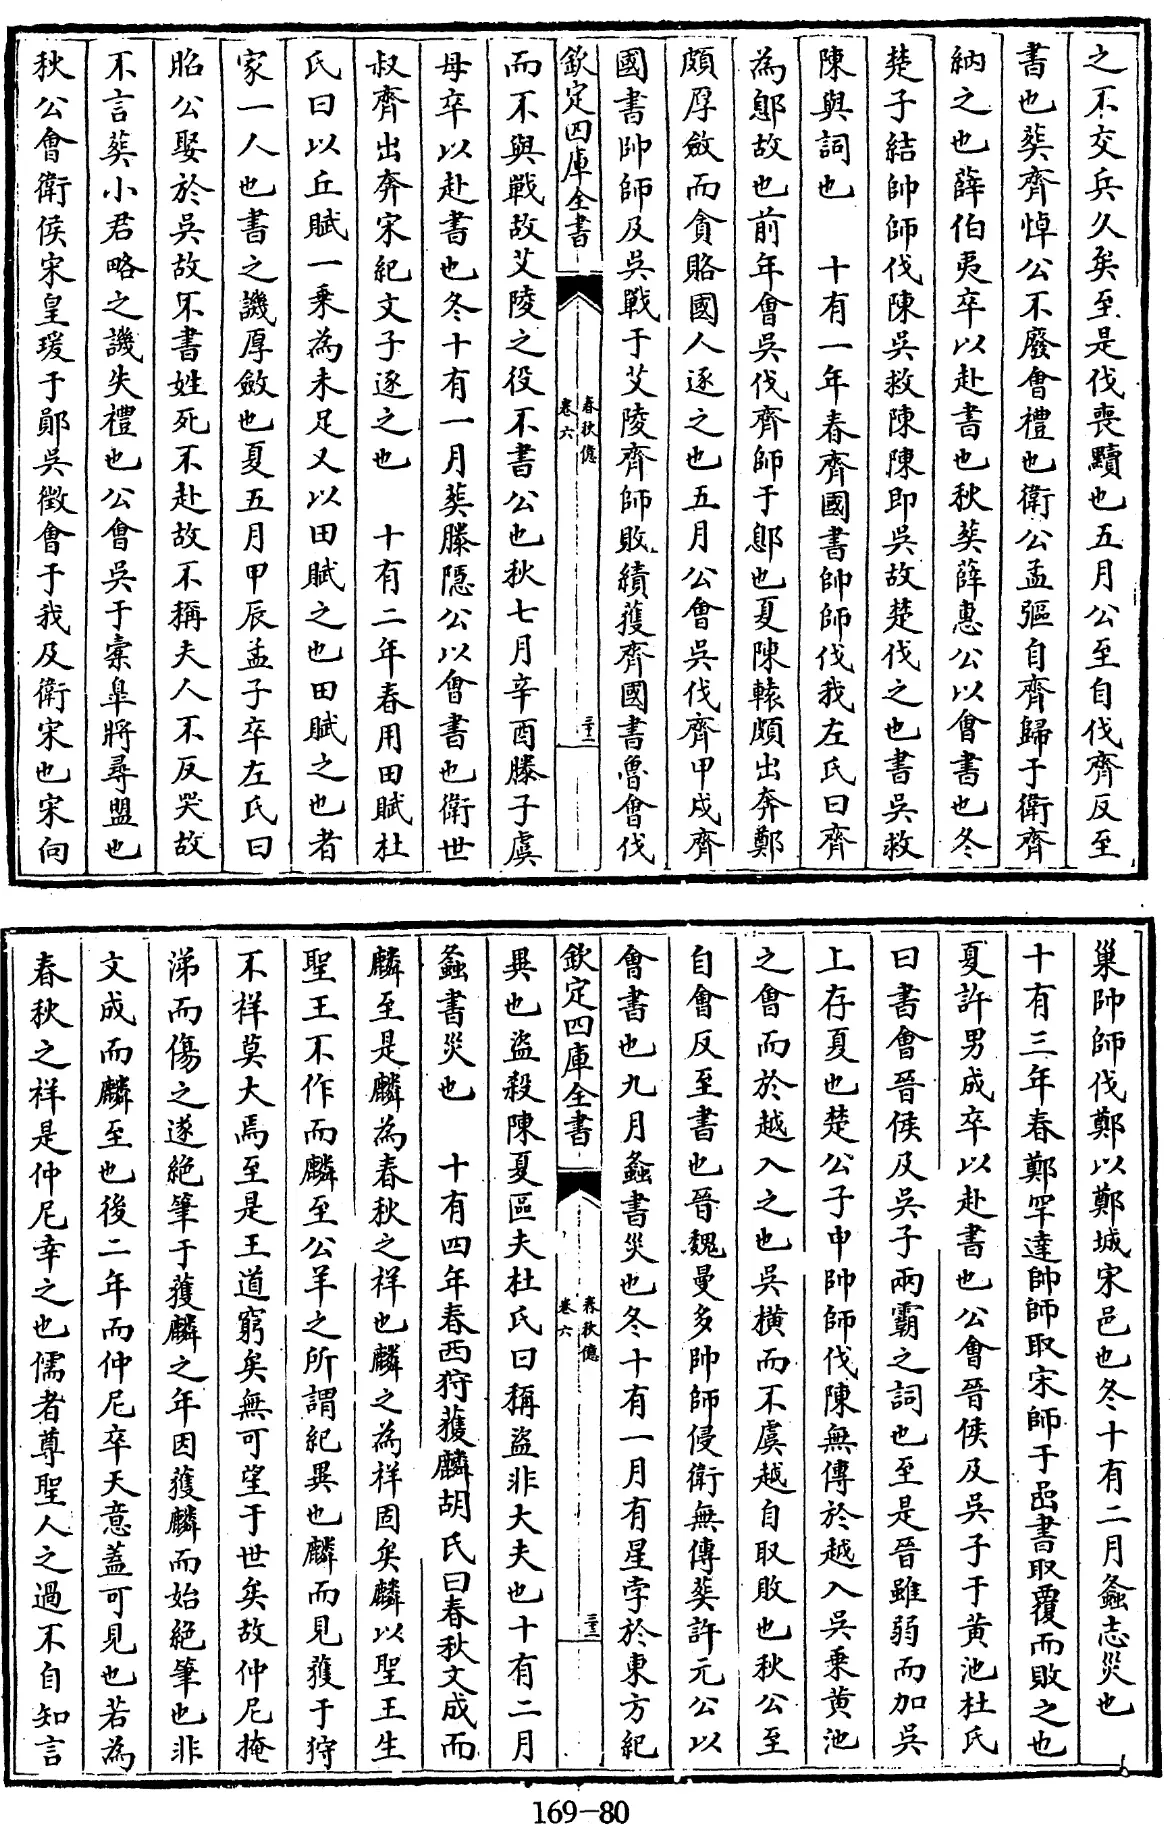 之不交兵久矣至是伐喪黷也五月公至自伐齊反至
書也葬齊悼公不廢會禮也衛公孟彄自齊歸于衛齊
納之也薛伯夷卒以赴書也秋葬薛惠公以會書也冬
楚子結帥師伐陳吳救陳陳即吳故楚伐之也書吳救
陳與詞也　十有一年春齊國書帥師伐我左氏曰齊
為郎故也前年會吳伐齊師于郎也夏陳轅頗出奔鄭
頗厚斂而貪賂國人逐之也五月公會吳伐齊甲戌齊
國書帥師及吳戰于艾陵齊師敗績獲齊國書魯會伐
欽定四庫全書
春秋億
卷六
三十二
而不與戰故艾陵之役不書公也秋七月辛酉滕子虞
母卒以赴書也冬十有一月葬滕隱公以會書也衛世
叔齊出奔宋紀文子逐之也　十有二年春用田賦杜
氏曰以丘賦一乘為未足又以田賦之也田賦之也者
家一人也書之譏厚斂也夏五月甲辰孟子卒左氏曰
昭公娶於吳故不書姓死不赴故不稱夫人不反哭故
不言葬小君略之譏失禮也公會吳于橐臯將尋盟也
秋公會衛侯宋皇瑗于鄖吳徵會于我及衛宋也宋向
巢帥師伐鄭以鄭城宋邑也冬十有二月螽志災也
十有三年春鄭罕達帥師取宋師于嵒書取覆而敗之也
夏許男成卒以赴書也公會晉侯及吳子于黃池杜氏
曰書會晉侯及吳子兩霸之詞也至是晉雖弱而加吳
上存夏也楚公子申帥師伐陳無傳於越入吳乘黃池
之會而於越入之也吳橫而不虞越自取敗也秋公至
自會反至書也晉魏曼多帥師侵衛無傳葬許元公以
會書也九月螽書災也冬十有一月有星孛於東方紀
欽定四庫全書
春秋億
卷六
三十三
異也盜殺陳夏區夫杜氏曰稱盜非大夫也十有二月
螽書災也　十有四年春西狩獲麟胡氏曰春秋文成而
麟至是麟為春秋之祥也麟之為祥固矣麟以聖王生
聖王不作而麟至公羊之所謂紀異也麟而見獲于狩
不祥莫大焉至是王道窮矣無可望于世矣故仲尼掩
涕而傷之遂絕筆于獲麟之年因獲麟而始絕筆也非
文成而麟至也後二年而仲尼卒天意蓋可見也若為
春秋之祥是仲尼幸之也儒者尊聖人之過不自知言
169-80